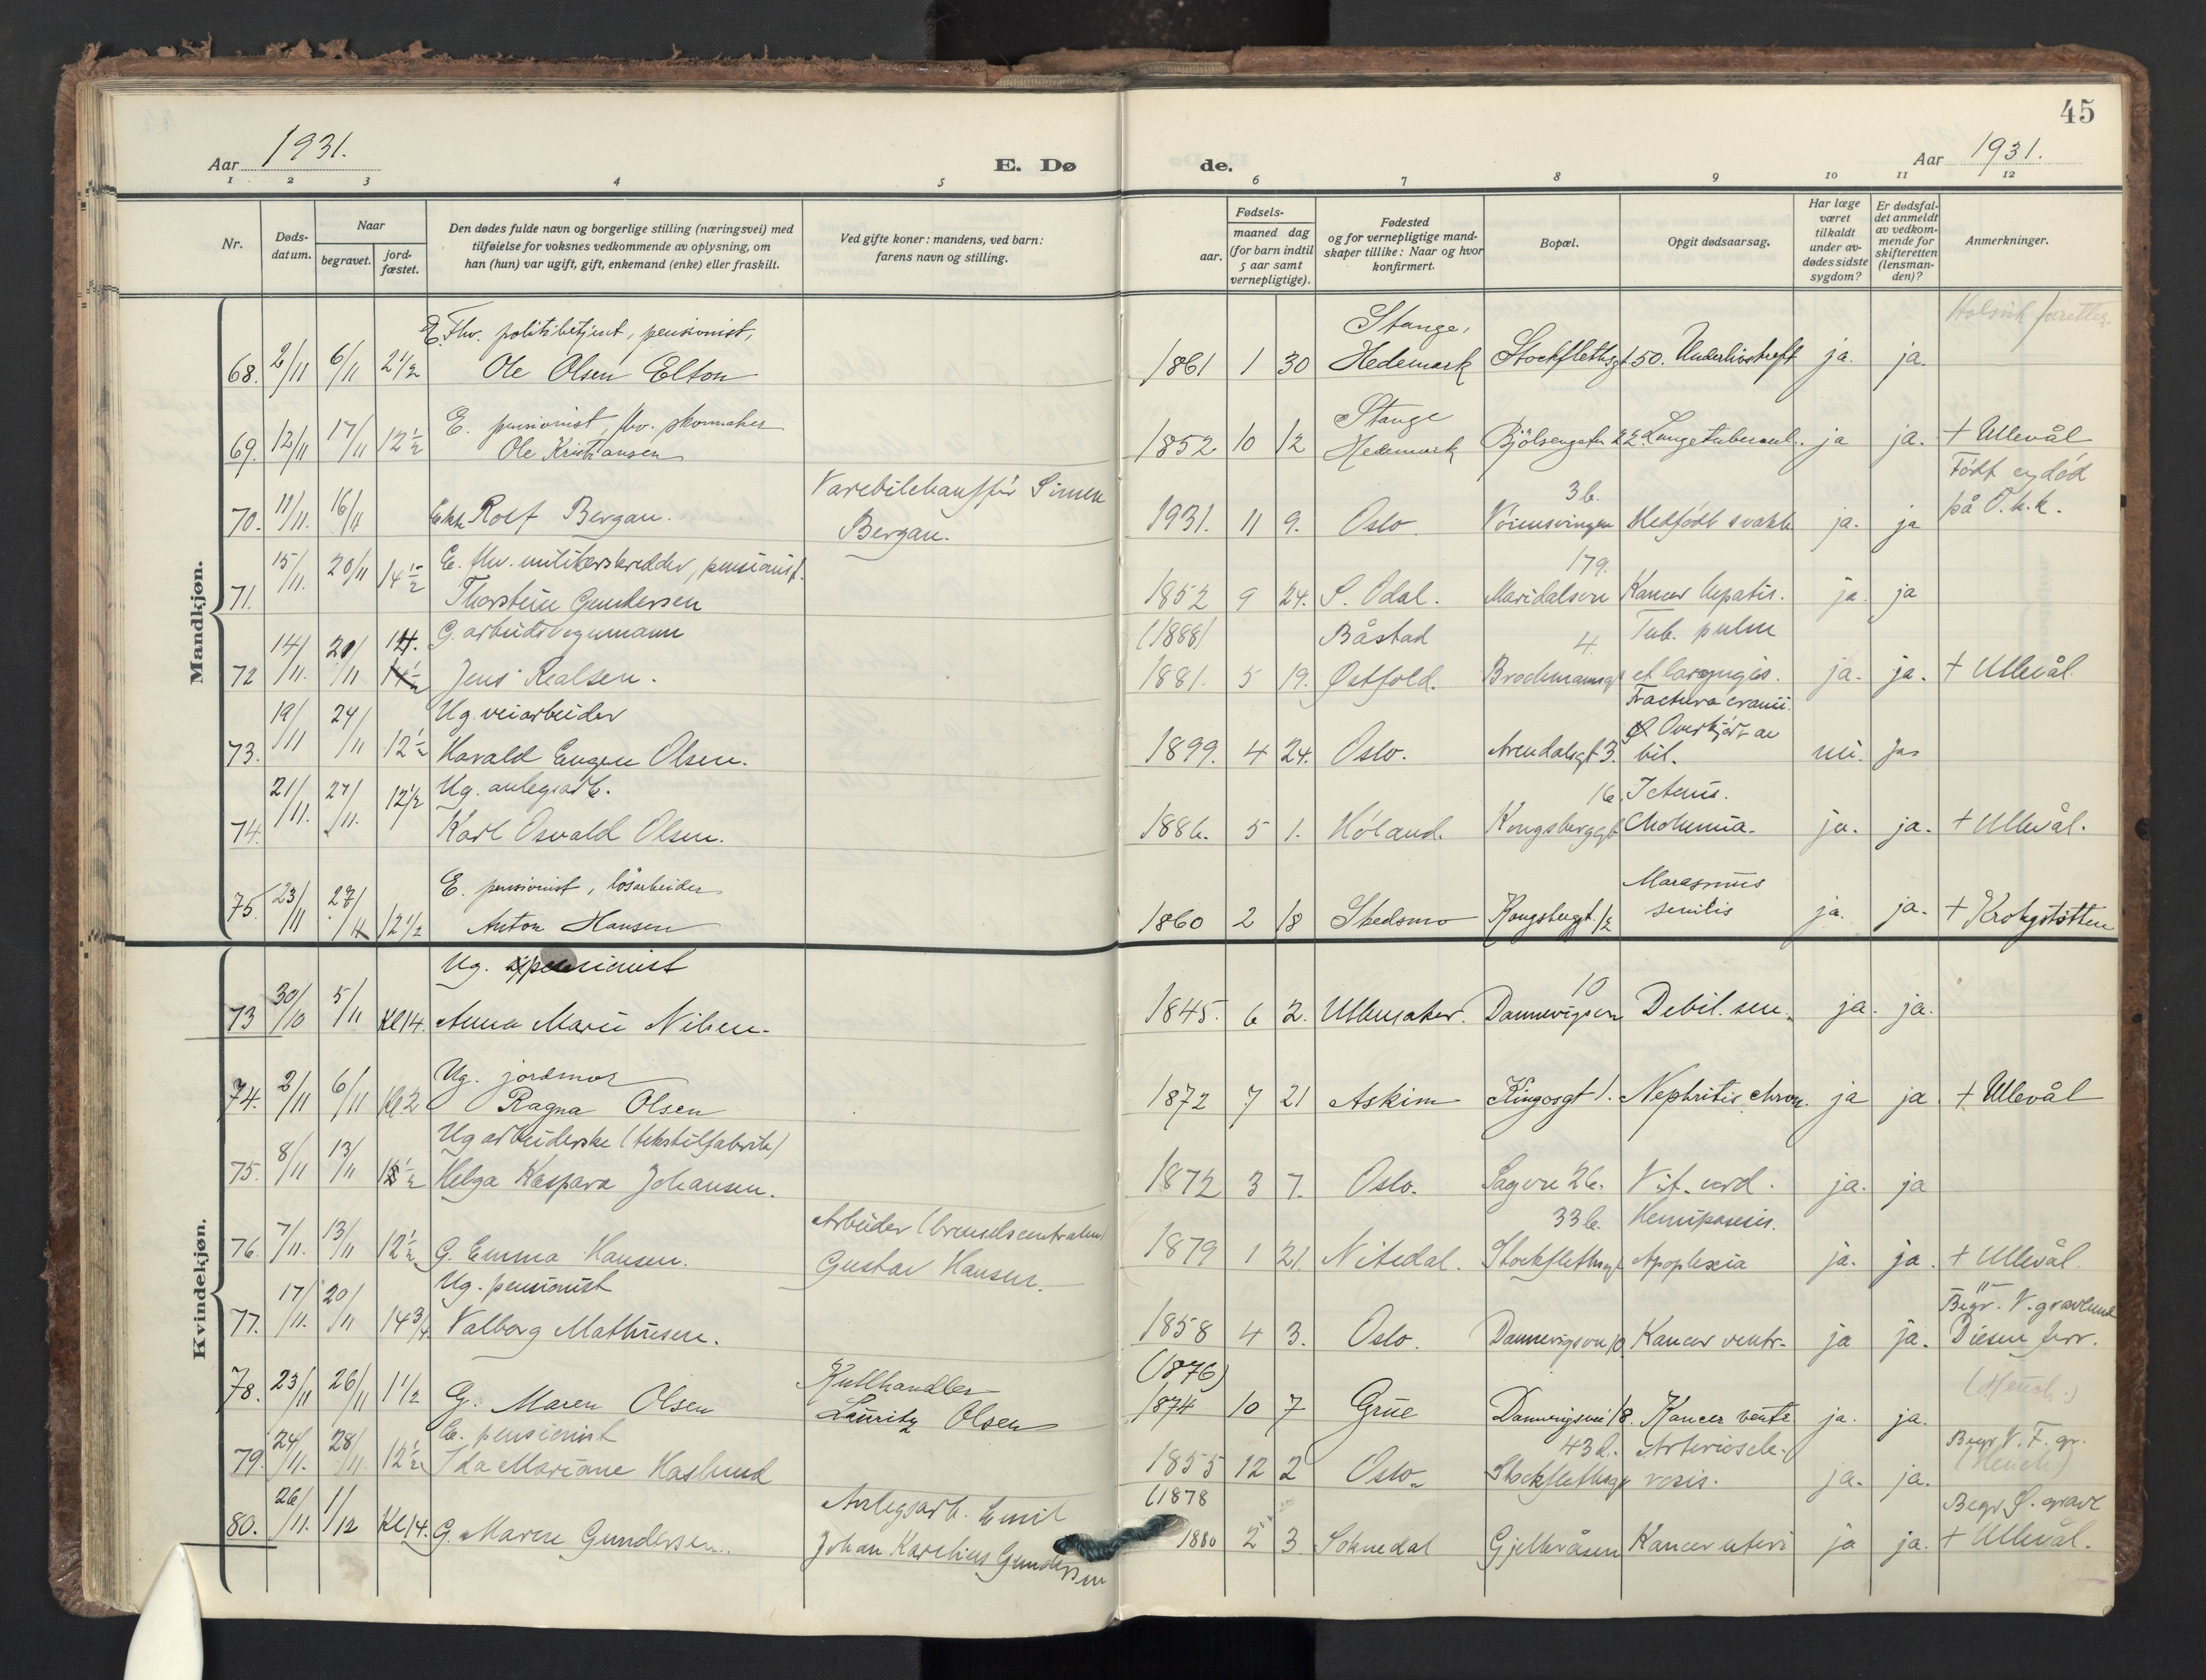 45
Aar 1931.
E. Dø de.
Aar 1931.
1 2 3 4 5 6 7 8 9 10 11 12
Nr.
Døds-
datum.
Naar
begravet.
jord-
fæstet.
Den dødes fulde navn og borgerlige stilling (næringsvei) med
tilføielse for voksnes vedkommende av oplysning, om
han (hun) var ugift, gift, enkemand (enke) eller fraskilt.
Ved gifte koner: mandens, ved barn:
farens navn og stilling.
Fødsels-
aar.
maaned dag
(for barn indtil
5 aar samt
vernepligtige).
Fødested
og for vernepligtige mand-
skaper tillike: Naar og hvor
konfirmert.
Bopæl.
Opgit dødsaarsag.
Har læge
været
tilkaldt
under av-
dødes sidste
sygdom?
Er dødsfal-
det anmeldt
av vedkom-
mende for
skifteretten
(lensman-
den)?
Anmerkninger.
Mandkjøn.
E. Fhv. politibetjent, pensionist, Stange,
68. 2/11 6/11 2 1/2 Ole Olsen Elton 1861 1 30 Hedemark Stockflethsgt 50. ja. ja.
E. pensionist, fhv. skomaker Stange
69. 12/11 17/11 12 1/2 Ole Kristiansen 1852 10 12 Hedemark Bjølsengaten 22. Lungetuberkul. ja ja. + Ullevål
Varebilchauffør Simen 3 b. Født og død
70. 11/11. 16/11 Ekte Rolf Bergan. Bergan. 1931. 11 9. Oslo. Vøiensvingen Medfødt svakh ja. ja på O.k.k.
E. fhv. militærskredder, pensionist. 179.
71. 15/11. 20/11 14 1/2 Thorstein Gundersen 1852 9 24. S. Odal. Maridalsvn Kancer hepatis. ja ja
G. arbeidsvognmann (1888) Båstad 4. Tub. pulm
72 14/11. 20/11 14. Jens Realsen. 1881. 5 19. Østfold. Brochmannsgt et laryngis. ja. ja. + Ullevål.
Ug. veiarbeider Fractura cranii.
Overkjørt av
73. 19/11 24/11 12 1/2 Harald Eugen Olsen. 1899. 4 24. Oslo. Arendalsgt 3. bil. nei. Ja
Ug. anlegsarb. 16. Icterus.
74. 21/11. 27/11. 12 1/2 Karl Osvald Olsen. 1886. 5 1. Høland. Kongsberggt Cholemia. ja. ja. + Ullevål.
E. pensionist, løsarbeider Marasmus
75. 23/11 27/11 12 1/2 Anton Hansen 1860 2 18 Skedsmo Kongsbeggt. 12 senilis ja. ja. + Krohgstøtten
Kvindekjøn.
Ug. pensionist 10
73 30/10 5/11 Kl 14. Anna Marie Nilsen. 1845. 6 2. Ullensaker. Dannevigsvn Debil. sen. ja. ja.
Ug. jordmor
74. 2/11 6/11 kl 2 Ragna Olsen 1872 7 21 Askim Kingosgt 1. Nephritis chron. ja ja + Ullevål
Ug arbeiderske (tekstilfabrik)
75. 8/11 13/11 Helga Kaspara Johansen. 1872 3 7. Oslo. Sagvn 26. Vit. cord. ja. ja
Arbeider (brenselscentralen) 33 b. Hemiparesis.
76. 7/11. 13/11 12 1/2 G. Emma Hansen. Gustav Hansen. 1879 1 21 Nitedal. Stockflethsgt Apoplexia ja. ja. + Ullevål.
Ug. pensionist Begr. V. gravlund
77. 17/11. 20/11 14 3/4 Valborg Mathiesen. 1858 4 3. Oslo. Dannevigsvn 10 Kancer ventr. ja ja. Diesen forr.
Kullhandler (1876)
78. 23/11 26/11 1 1/2 G. Maren Olsen Lauritz Olsen 1874 10 7 Grue Dannevigsvei 18. Kancer ventr. ja. ja.
E. pensionist 43 d. Arteriosele- Begr. V. F. gr.
79. 24/11. 28/11. 12 1/2 Ida Mariane Haslund 1855 12 2 Oslo. Stockflethsgt rosis. ja. ja.
Anlegsarb. Emil (1878 Begr. Ø. gravl
80. 26/11. 1/12 Kl 14. G. Maren Gundersen. Johan Karelius Gundersen 1880 2 3. Soknedal Gjetteråsen Kancer uteri ja ja. + Ullevål.